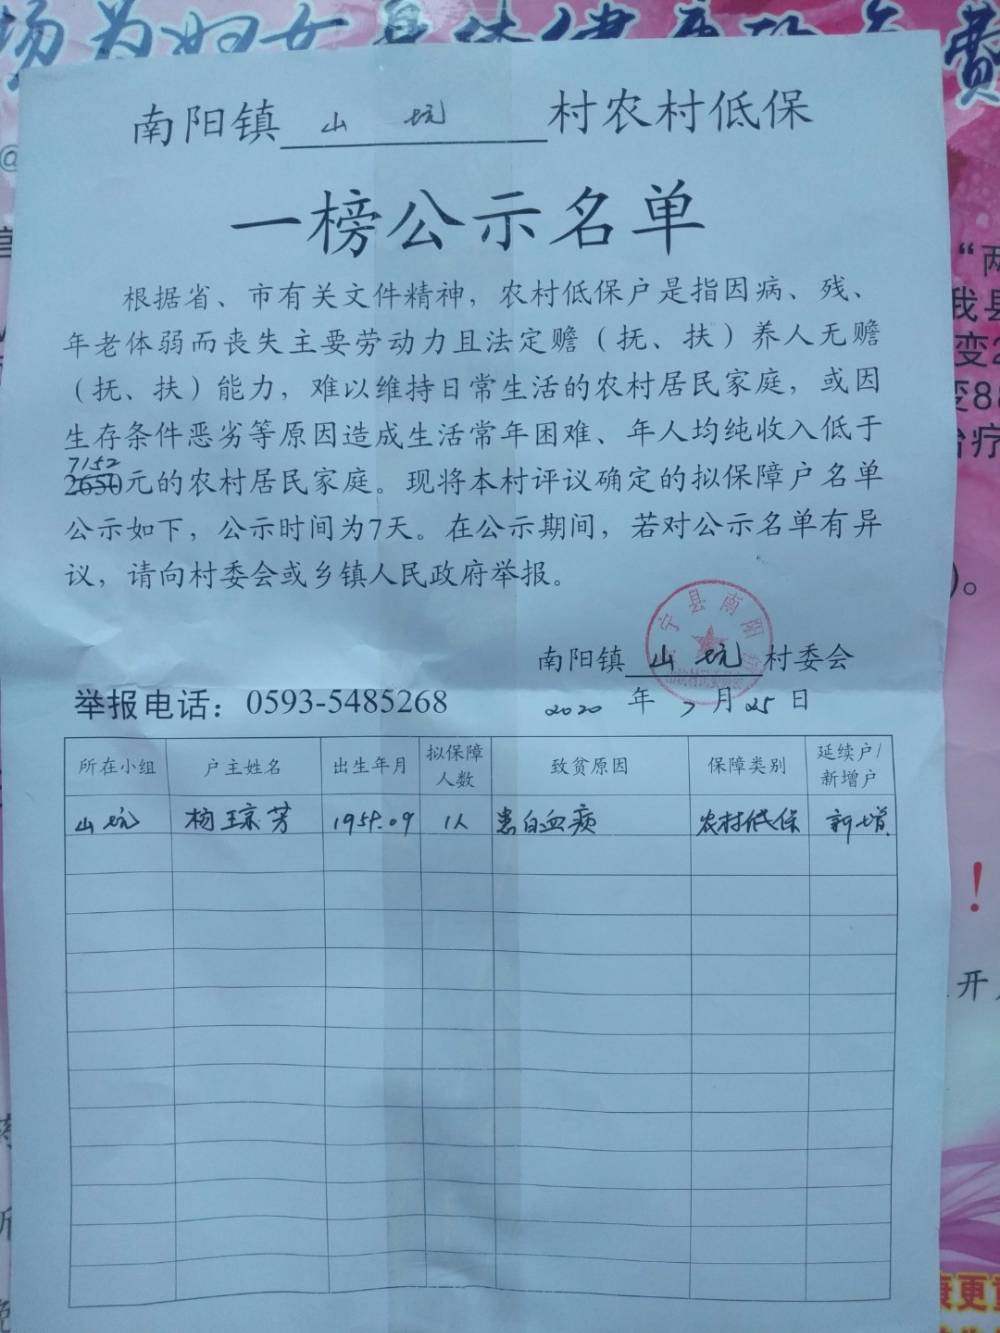 场为妇女身体健康
费
南阳镇 山坑 村农村低保
一榜公示名单
根据省、市有关文件精神，农村低保户是指因病、残、
年老体弱而丧失主要劳动力且法定赡（抚、扶）养人无赡
（抚、扶）能力，难以维持日常生活的农村居民家庭，或因
生存条件恶劣等原因造成生活常年困难、年人均纯收入低于
7152
2650元的农村居民家庭。现将本村评议确定的拟保障户名单
公示如下，公示时间为7天。在公示期间，若对公示名单有异
议，请向村委会或乡镇人民政府举报。
宁县南阳
南阳镇 山坑 村委会
举报电话：0593-5485268
2020 年 7 月 25 日
所在小组 户主姓名 出生年月 拟保障人数 致贫原因 保障类别 延续户/新增户
山坑 杨琼芳 1959.09 1人 患白血病 农村低保 新增
“两
我县
变2
变8
治疗
)。
！
开
康更